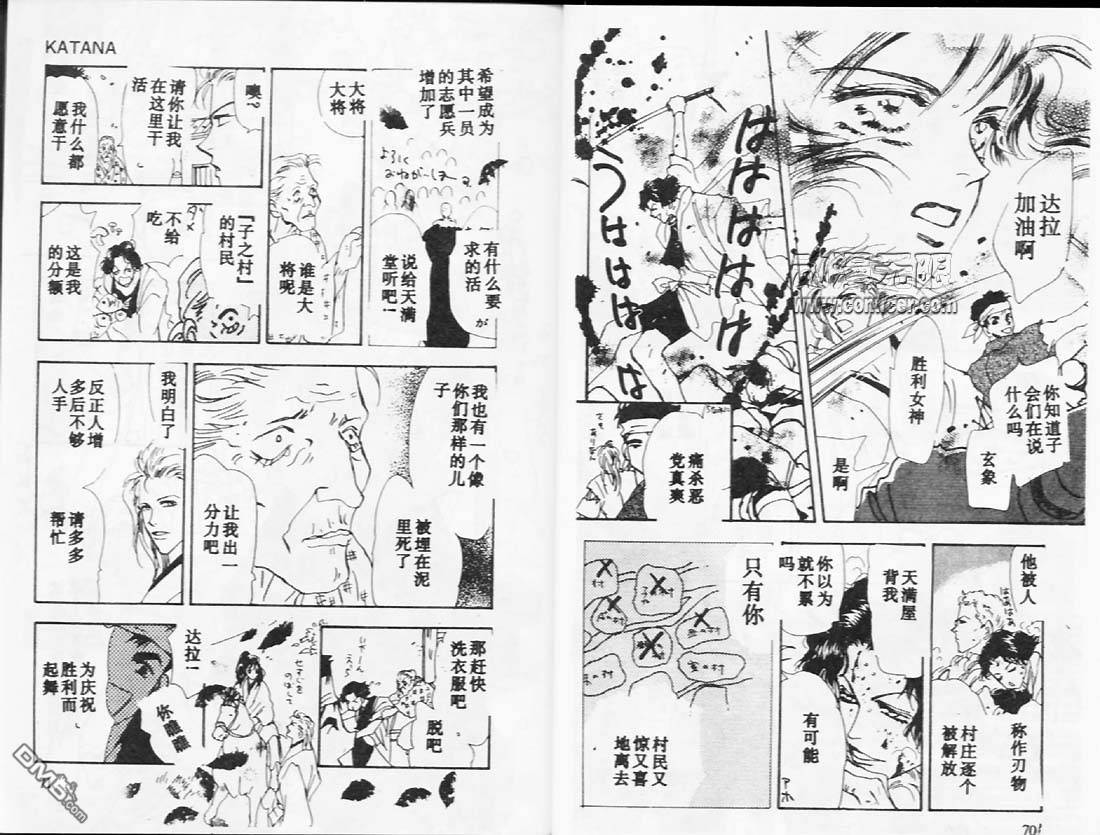 达拉
加油啊
你知道子
会们在说
什么吗
玄象
胜利女神
是啊
はははは
うははは
痛杀恶
党真爽
でも
ありません
他被人
はあはあ
称作刃物
村庄逐个
被解放
天满屋
背我
你以为
就不累
吗
有可能
アホ
只有你
村
村民又
惊又喜
地离去
70
KATANA
希望成为
其中一员
的志愿兵
增加了
よろしく
おねがいしまーす
有什么要
求的活
が
说给天满
堂听吧!
大将
大将
谁是大
将呢
噢?
请你让我
在这里干
活
我什么都
愿意干
『子之村』
的村民
不给
吃
这是我
的分额
我也有一个像
你们那样的儿
子
被埋在泥
里死了
让我出一
分力吧
我明白了
反正人增
多后不够
人手
请多多
帮忙
那赶快
洗衣服吧
脱吧
达拉!
你瞧瞧
为庆祝
胜利而
起舞
漫无限
www.comicsr.com
DM5.com